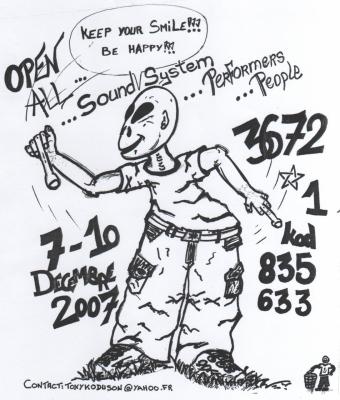 KEEP YOUR SMILE!!!
BE HAPPY!!!
OPEN
ALL...
...SOUND/SYSTEM
...PERFORMERS
...PEOPLE
3672
1
Kod
835
633
7-10
DECEMBRE
2007
CONTACT:TONYKODUSON@YAHOO.FR